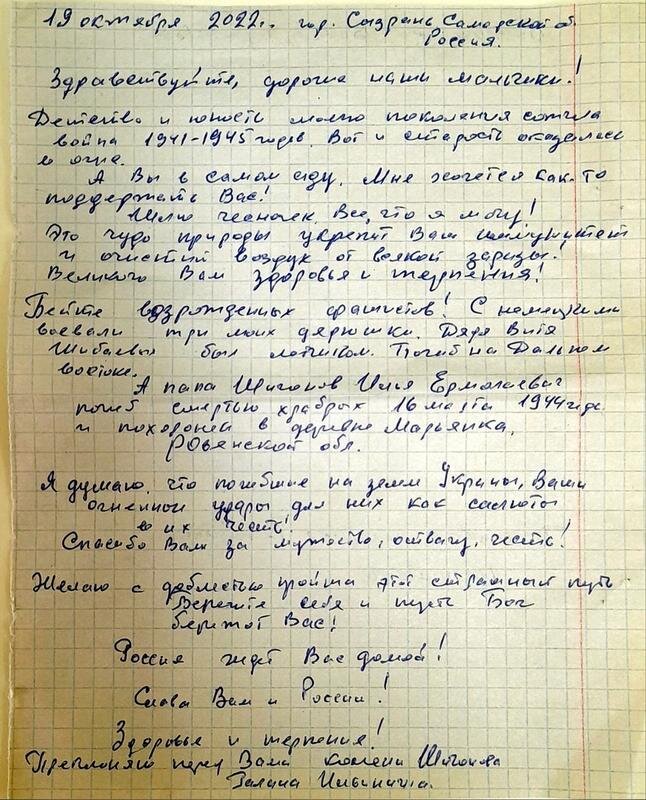 19 октября 2022г. гор. Сызрань Самарской об
Россия.
Здравствуйте, дорогие наши мальчики!
Детство и юность моего поколения сожгла
война 1941-1945 годов. Вот и старость оказалась
в огне.
А Вы в самом аду. Мне хочется как-то
поддержать Вас!
Шлю чесночек. Все, что я могу!
Это чудо природы укрепит Вам иммунитет
и очистит воздух от всякой заразы!
Великого Вам здоровья и терпения!
Бейте возрожденных фашистов! С немецкими
воевали три моих дядюшки. Дядя Витя
Шибаевых был летчиком. Погиб на Дальнем
востоке.
А папа Шигонов Илья Ермолаевич
погиб смертью храбрых 16 марта 1944 года
и похоронен в деревне Марьянка,
Ровенской обл.
Я думаю, что погибшие на земле Украины, Ваши
огненные удары для них как салюты
в их честь!
Спасибо Вам за мужество, отвагу, честь!
Желаю с доблестью пройти этот страшный путь
Берегите себя и пусть Бог
бережот Вас!
Россия ждет Вас домой!
Слава Вам и России!
Здоровья и терпения!
Преклоняю перед Вами колени Шигонова
Галина Ильинична.